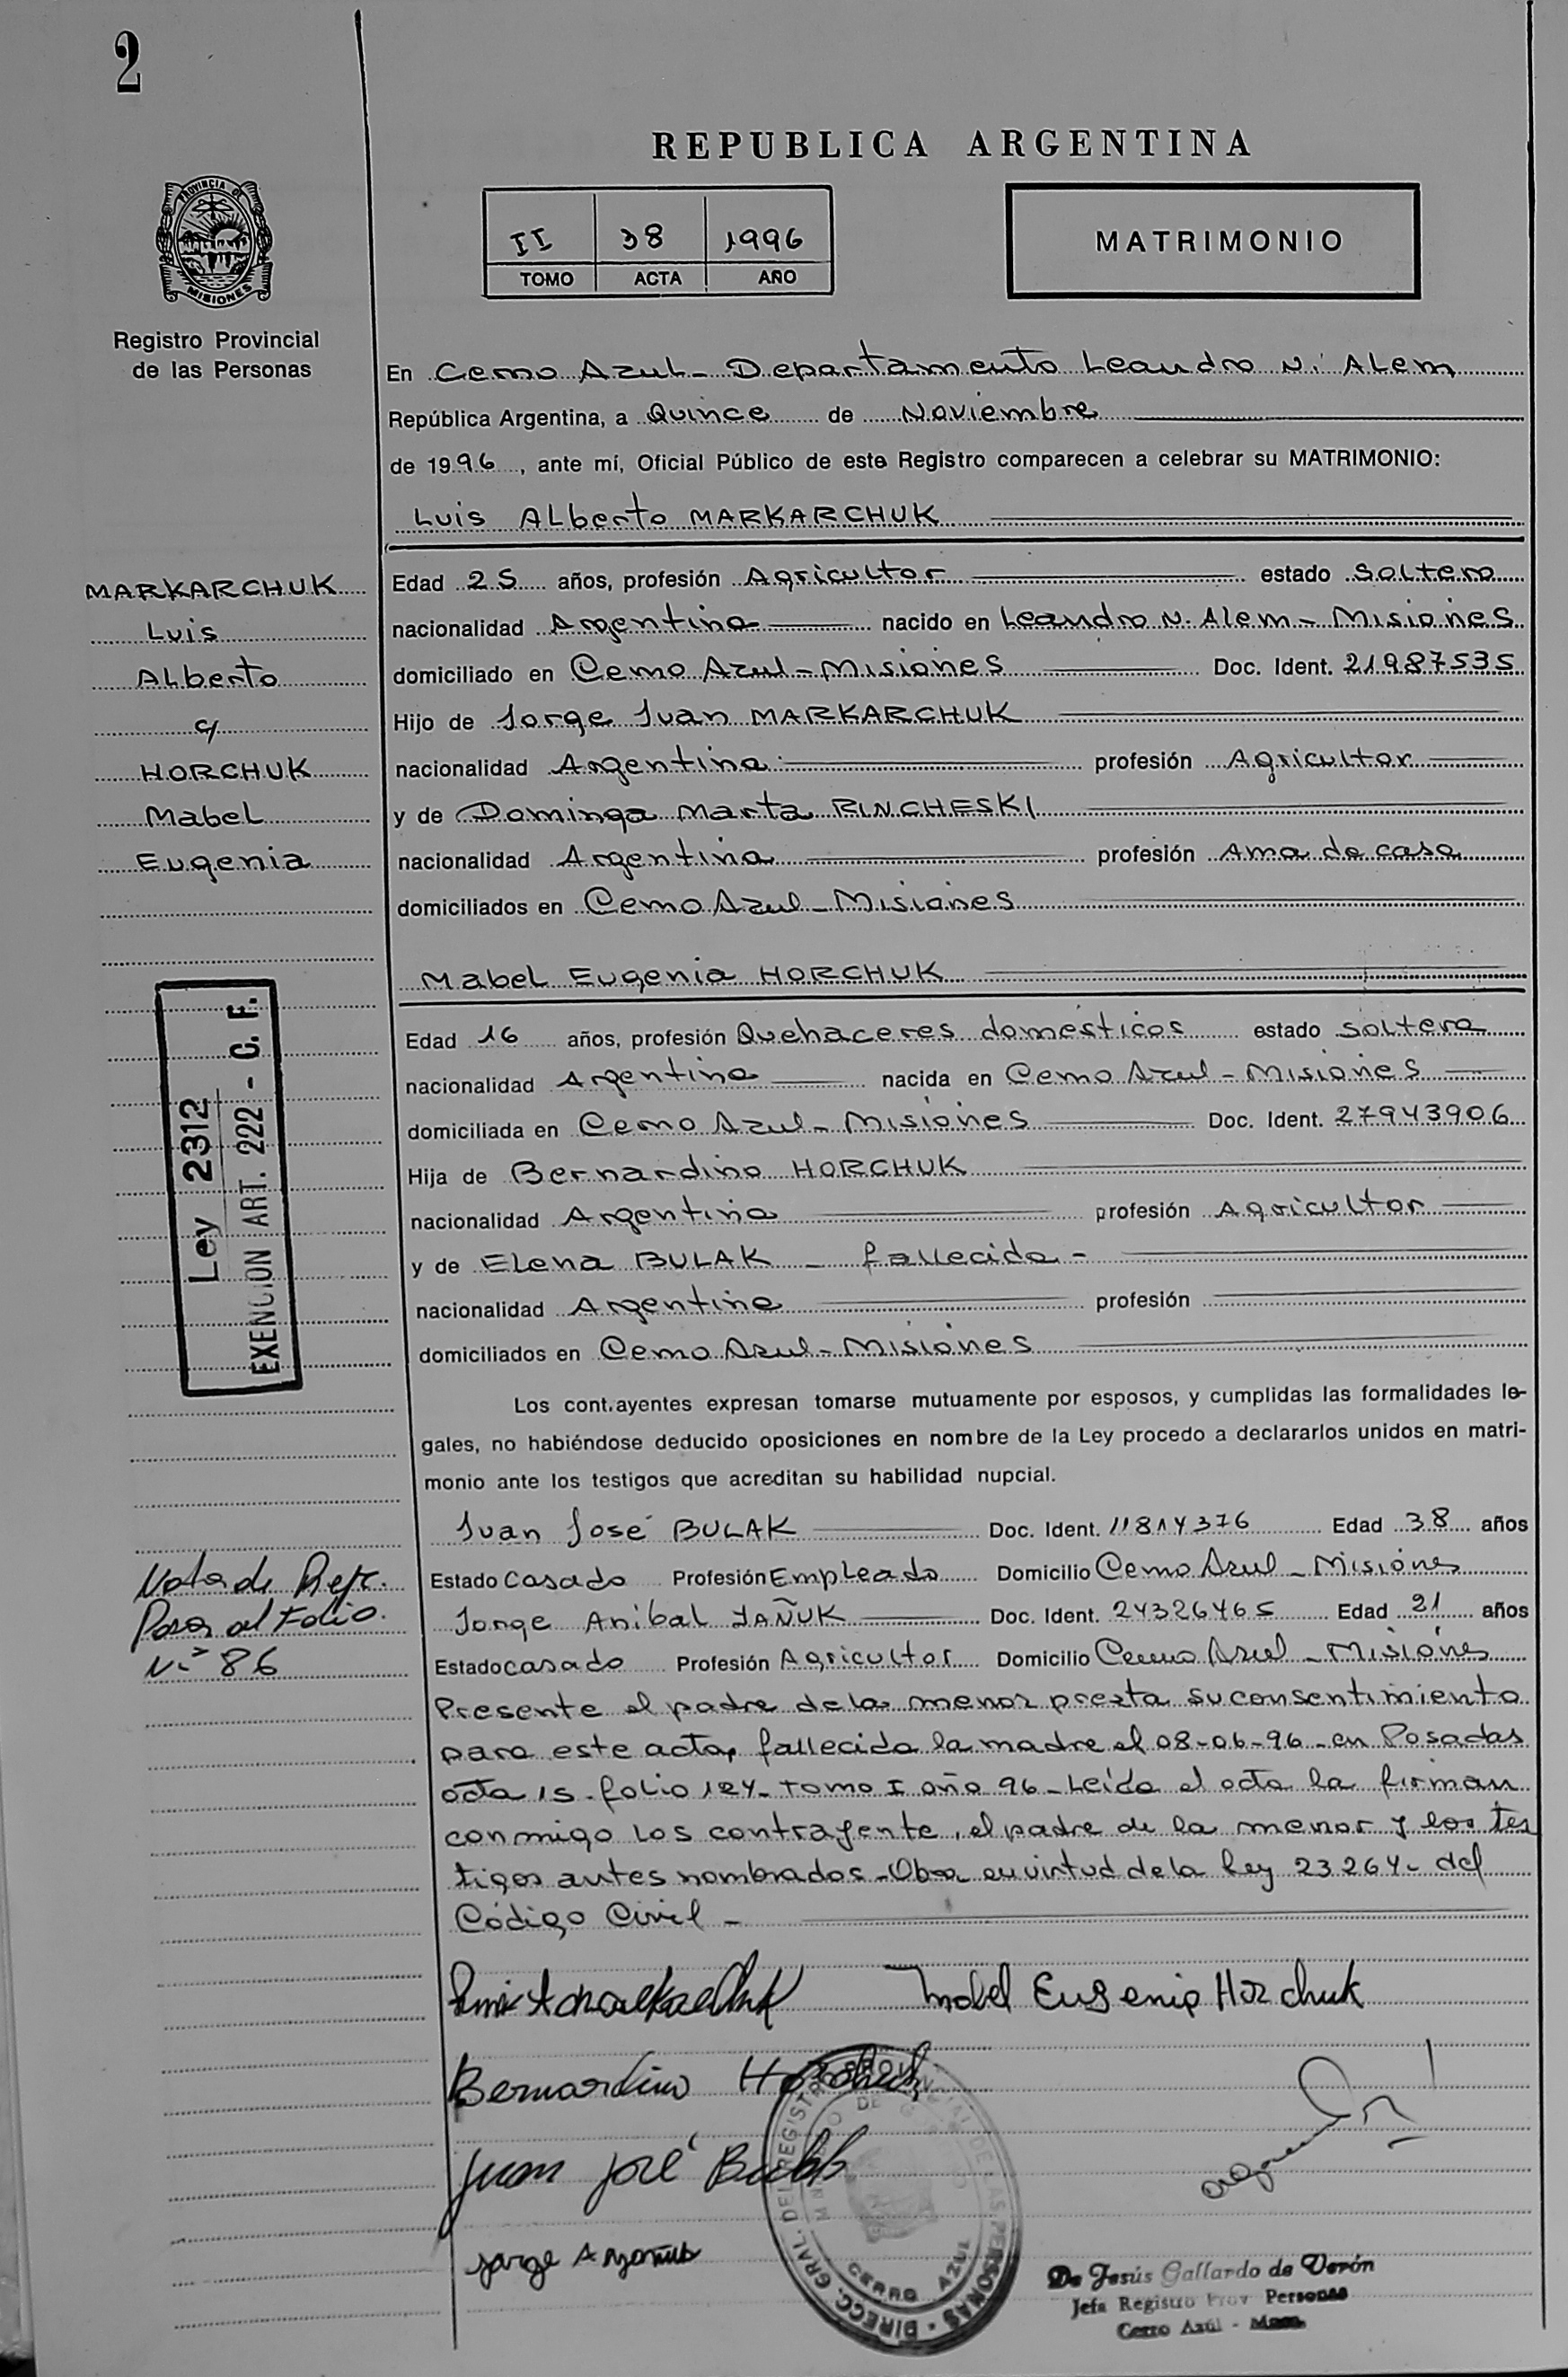 2
REPUBLICA ARGENTINA
PROVINCIA DE
MISIONES
II 38 1996
TOMO ACTA AÑO
MATRIMONIO
Registro Provincial
de las Personas
En Cerro Azul - Departamento Leandro N. Alem
República Argentina, a Quince de Noviembre
de 1996, ante mí, Oficial Público de este Registro comparecen a celebrar su MATRIMONIO:
Luis Alberto MARKARCHUK
MARKARCHUK
Luis
Alberto
c/
HORCHUK
Mabel
Eugenia
Edad 25 años, profesión Agricultor estado Soltero
nacionalidad Argentina nacido en Leandro N. Alem - Misiones
domiciliado en Cerro Azul - Misiones Doc. Ident. 21987535
Hijo de Jorge Juan MARKARCHUK
nacionalidad Argentina profesión Agricultor
y de Dominga Marta RINCHESKI
nacionalidad Argentina profesión Ama de casa
domiciliados en Cerro Azul - Misiones
Mabel Eugenia HORCHUK
Edad 16 años, profesión Quehaceres domésticos estado soltera
nacionalidad Argentina nacida en Cerro Azul - Misiones
domiciliada en Cerro Azul - Misiones Doc. Ident. 27943906
Hija de Bernardino HORCHUK
nacionalidad Argentina profesión Agricultor
y de Elena BULAK - fallecida -
nacionalidad Argentina profesión
domiciliados en Cerro Azul - Misiones
Ley 2312
EXENCION ART. 222 - C. F.
Los cont.ayentes expresan tomarse mutuamente por esposos, y cumplidas las formalidades le-
gales, no habiéndose deducido oposiciones en nombre de la Ley procedo a declararlos unidos en matri-
monio ante los testigos que acreditan su habilidad nupcial.
Juan José BULAK Doc. Ident. 11814376 Edad 38 años
Estado Casado Profesión Empleado Domicilio Cerro Azul - Misiones
Jorge Anibal YAÑUK Doc. Ident. 24326465 Edad 21 años
Estado casado Profesión Agricultor Domicilio Cerro Azul - Misiones
Nota de Refe.
Pasa al Folio
Nº 86
Presente el padre de la menor presta su consentimiento
para este acto, fallecida la madre el 08-06-96 - en Posadas
acta 15 - folio 124 - Tomo I año 96 - Leída el acta la firman
conmigo los contrayente, el padre de la menor y los tes
tigos antes nombrados - Obra en virtud de la Ley 23264 - del
Código Civil -
Mabel Eugenia Horchuk
Bernardino Horchuk
Juan José Bulak
Jorge A Yañuk
DIRECC. GRAL. DEL REGISTRO PROVINCIAL DE LAS PERSONAS
CERRO AZUL
De Jesús Gallardo de Verón
Jefa Registro Prov Personas
Cerro Azul - Mnes.